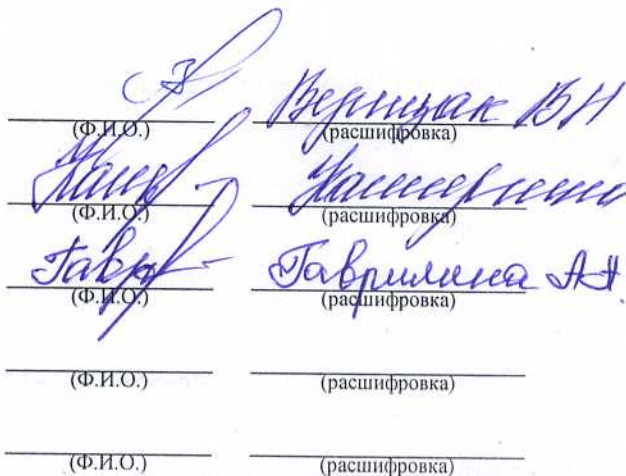 В.Н.
(Ф.И.О.) (расшифровка)
(Ф.И.О.) (расшифровка)
Гавр Гаврилина А.Н.
(Ф.И.О.) (расшифровка)
(Ф.И.О.) (расшифровка)
(Ф.И.О.) (расшифровка)